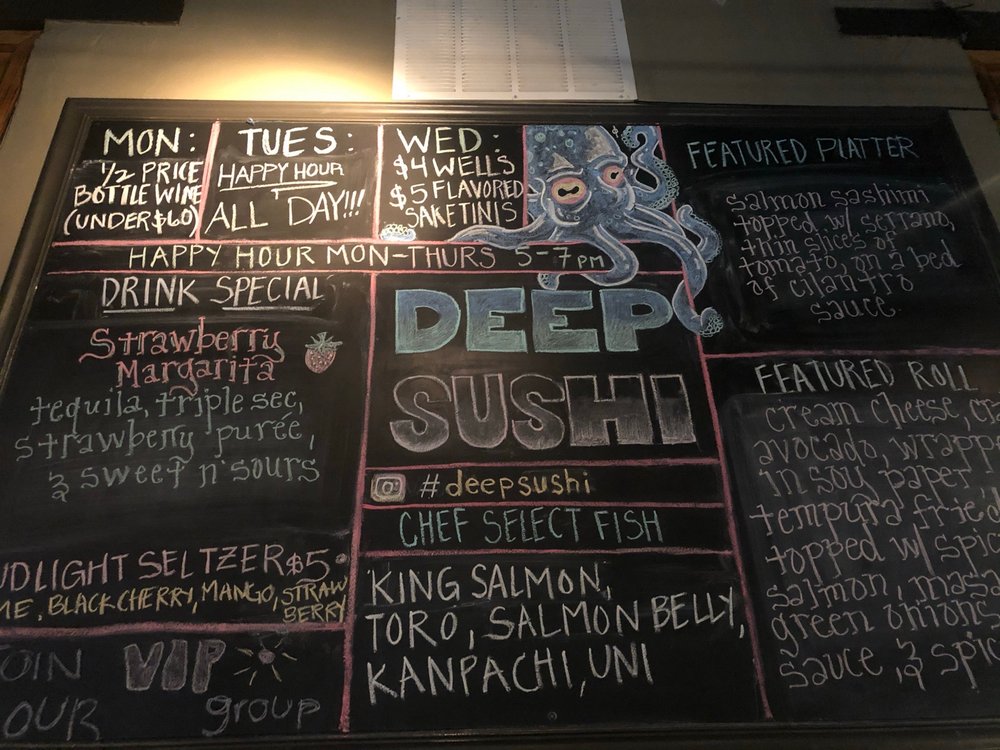 MON:
1/2 PRICE
BOTTLE WINE
(UNDER $60)
TUES:
HAPPY HOUR
ALL DAY!!!
WED:
$4 WELLS
$5 FLAVORED
SAKETINIS
HAPPY HOUR MON-THURS 5-7PM
DRINK SPECIAL
Strawberry
Margarita
tequila, triple sec,
strawberry purée,
& sweet n' sours
UDLIGHT SELTZER $5
ME, BLACK CHERRY, MANGO, STRAW
BERRY
JOIN VIP
OUR group
DEEP
SUSHI
#deepsushi
CHEF SELECT FISH
KING SALMON,
TORO, SALMON BELLY,
KANPACHI, UNI
FEATURED PLATTER
salmon sashimi
topped w/ serrano,
thin slices of
tomato, on a bed
of cilantro
sauce.
FEATURED ROLL
cream cheese, cra
avocado, wrapp
in soy paper
tempura fried
topped w/ spic
salmon, masa
green onions
sauce, & spic